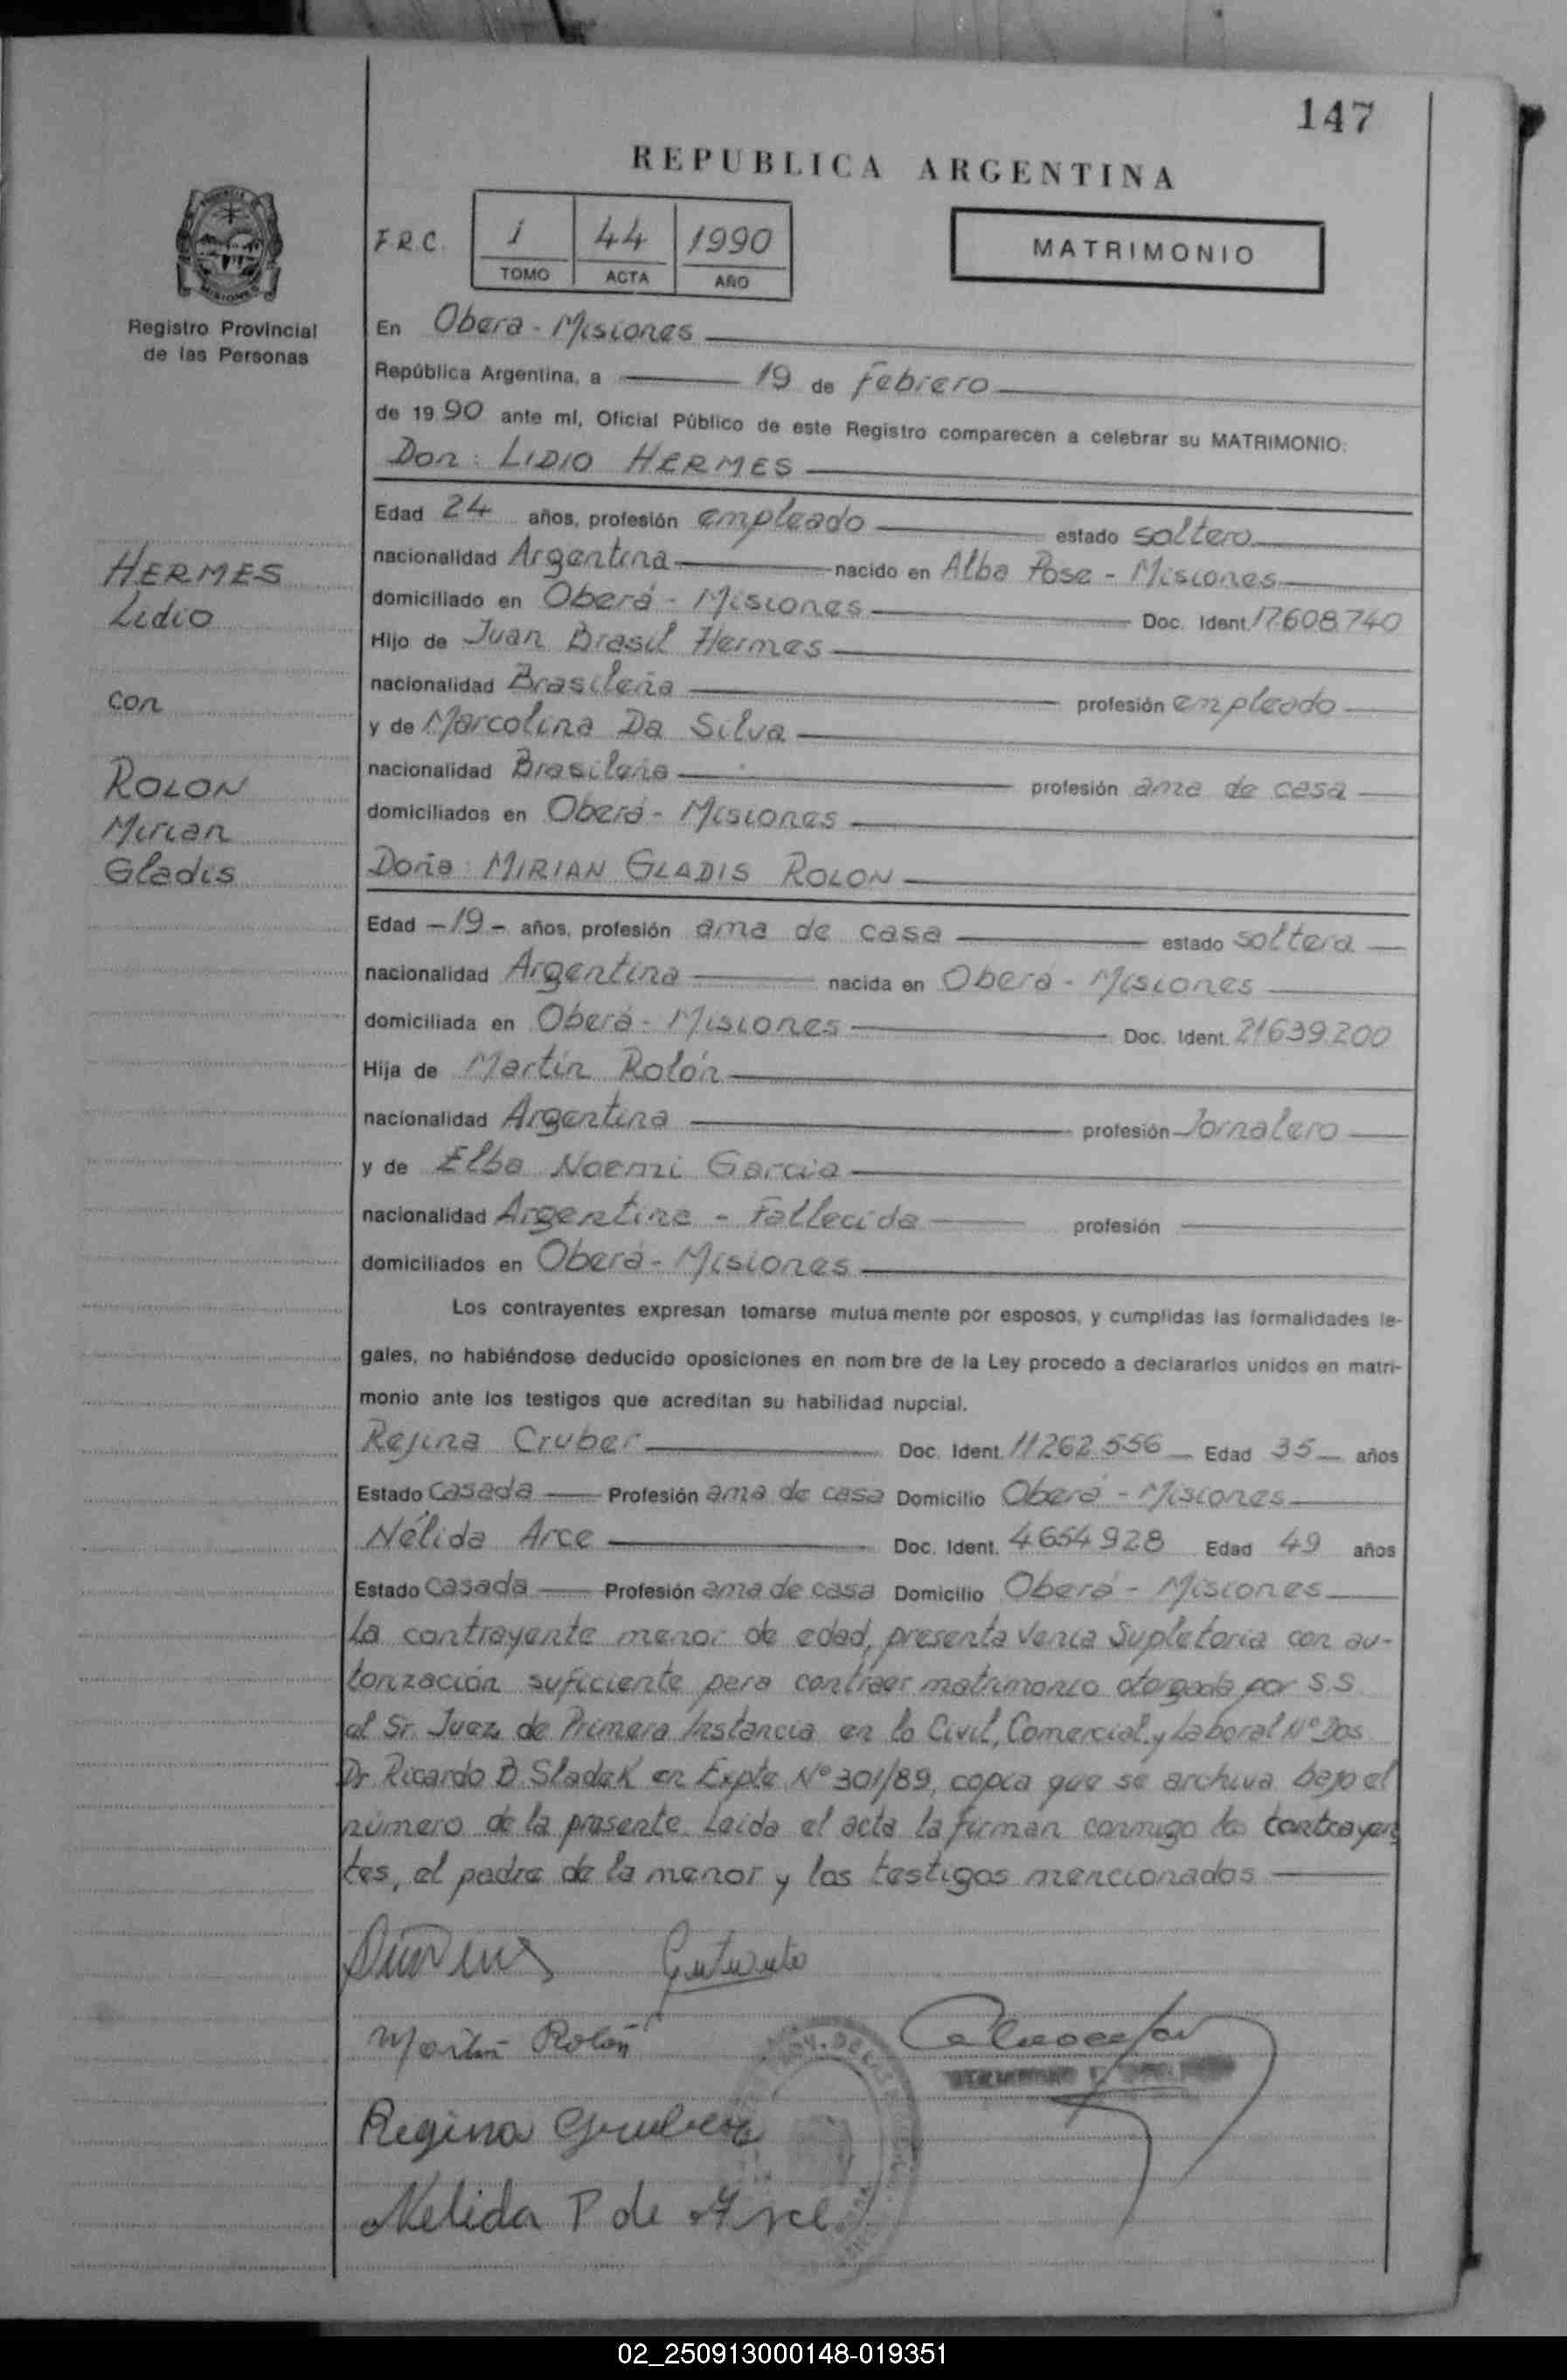 147
REPUBLICA ARGENTINA
F.R.C. 1 44 1990
TOMO ACTA AÑO
MATRIMONIO
MISIONES
Registro Provincial
de las Personas
En Obera - Misiones
República Argentina, a 19 de Febrero
de 1990 ante mí, Oficial Público de este Registro comparecen a celebrar su MATRIMONIO:
Don: LIDIO HERMES
Edad 24 años, profesión empleado estado soltero
nacionalidad Argentina nacido en Alba Pose - Misiones
domiciliado en Oberá - Misiones Doc. Ident. 17.608.740
Hijo de Juan Brasil Hermes
nacionalidad Brasileña profesión empleado
y de Marcolina Da Silva
nacionalidad Brasileña profesión ama de casa
domiciliados en Oberá - Misiones
HERMES
Lidio
con
ROLON
Mirian
Gladis
Doña: MIRIAN GLADIS ROLON
Edad -19- años, profesión ama de casa estado soltera
nacionalidad Argentina nacida en Oberá - Misiones
domiciliada en Oberá - Misiones Doc. Ident. 21.639.200
Hija de Martín Rolón
nacionalidad Argentina profesión Jornalero
y de Elba Noemi Garcia
nacionalidad Argentina - Fallecida profesión
domiciliados en Oberá - Misiones
Los contrayentes expresan tomarse mutuamente por esposos, y cumplidas las formalidades le-
gales, no habiéndose deducido oposiciones en nombre de la Ley procedo a declararlos unidos en matri-
monio ante los testigos que acreditan su habilidad nupcial.
Rejina Cruber Doc. Ident. 11.262.556 Edad 35 años
Estado Casada Profesión ama de casa Domicilio Oberá - Misiones
Nélida Arce Doc. Ident. 4.654.928 Edad 49 años
Estado Casada Profesión ama de casa Domicilio Oberá - Misiones
La contrayente menor de edad, presenta Venia Supletoria con au-
torización suficiente para contraer matrimonio otorgada por S.S.
el Sr. Juez de Primera Instancia en lo Civil, Comercial y Laboral Nº Dos
Dr. Ricardo D. Sladek en Expte Nº 301/89, copia que se archiva bajo el
número de la presente. Leida el acta la firman conmigo los contrayen
tes, el padre de la menor y los testigos mencionados
Martin Rolón
Regina Gruber
Nelida P de Arce
02_250913000148-019351